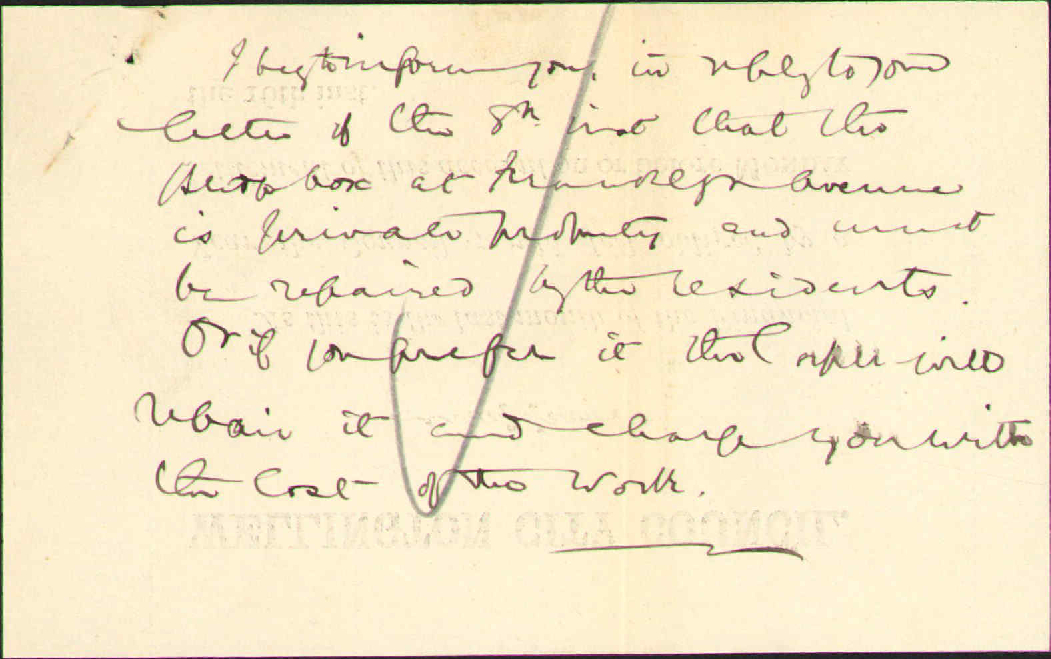 I beg to inform you, in reply to your
letter of the 8th inst that the
stop box at Avenue
is private property and must
be repaired by the residents.
Or if you prefer it the will
repair it and charge you with
the Cost of the Work.
the 26th inst.
WELLINGTON CITY COUNCIL.